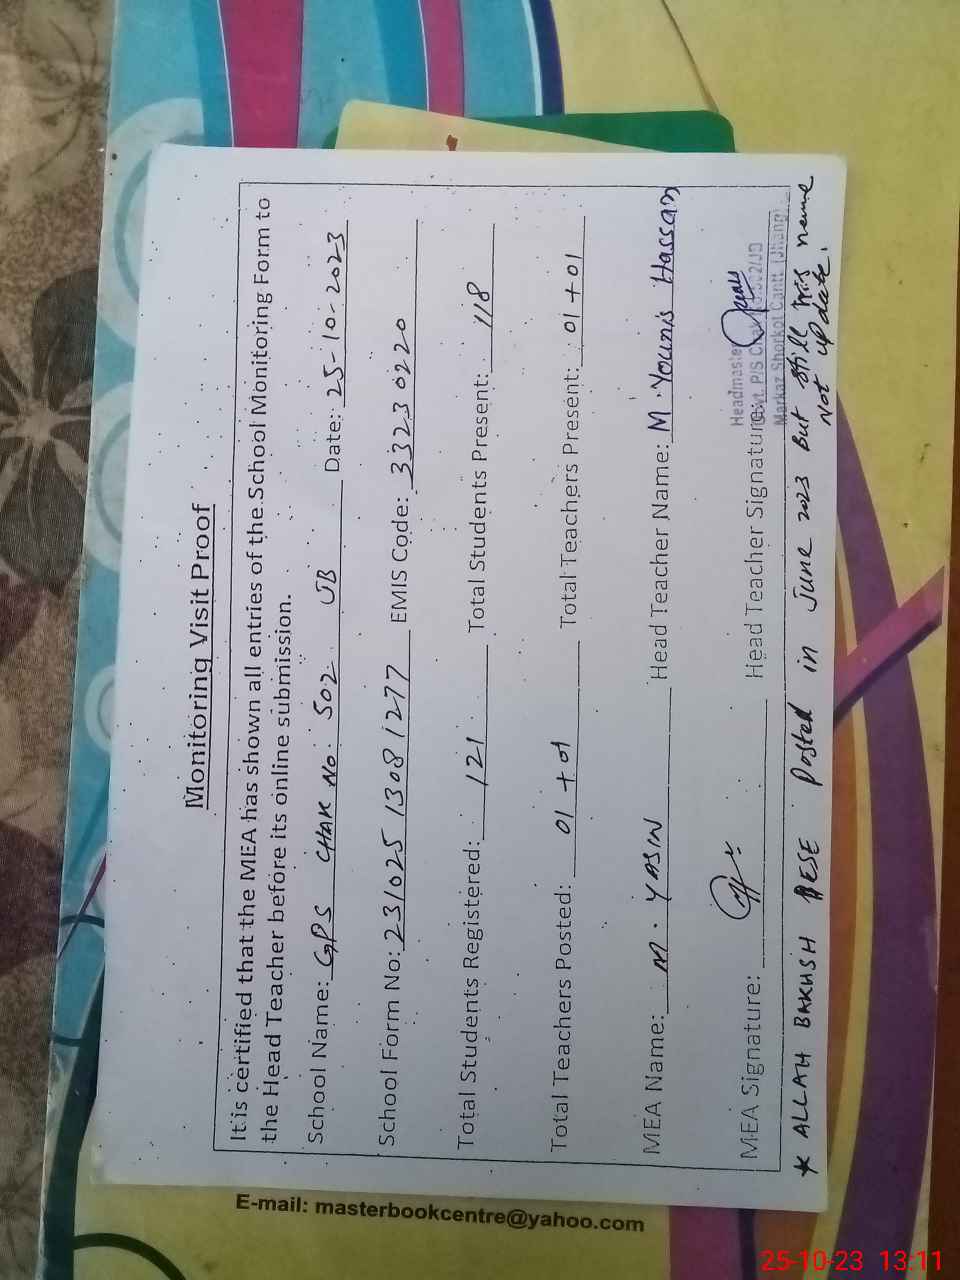 Monitoring Visit Proof
It is certified that the MEA has shown all entries of the School Monitoring Form to
the Head Teacher before its online submission.
School Name: GPS CHAK No. 502 JB Date: 25-10-2023
School Form No: 231025 1308 1277 EMIS Code: 3323 0220
Total Students Registered: 121 Total Students Present: 118
Total Teachers Posted: 01 + 01 Total Teachers Present: 01 + 01
MEA Name: M. YASIN Head Teacher Name: M. Younis Hassan
MEA Signature: Head Teacher Signature:
Headmaster
Govt. P/S Chak No.502/JB
Markaz Shorkot Cantt. (Jhang)
* ALLAH BAKHSH PESE Posted in June 2023 But still his name
Not update.
E-mail: masterbookcentre@yahoo.com
25-10-23 13:11